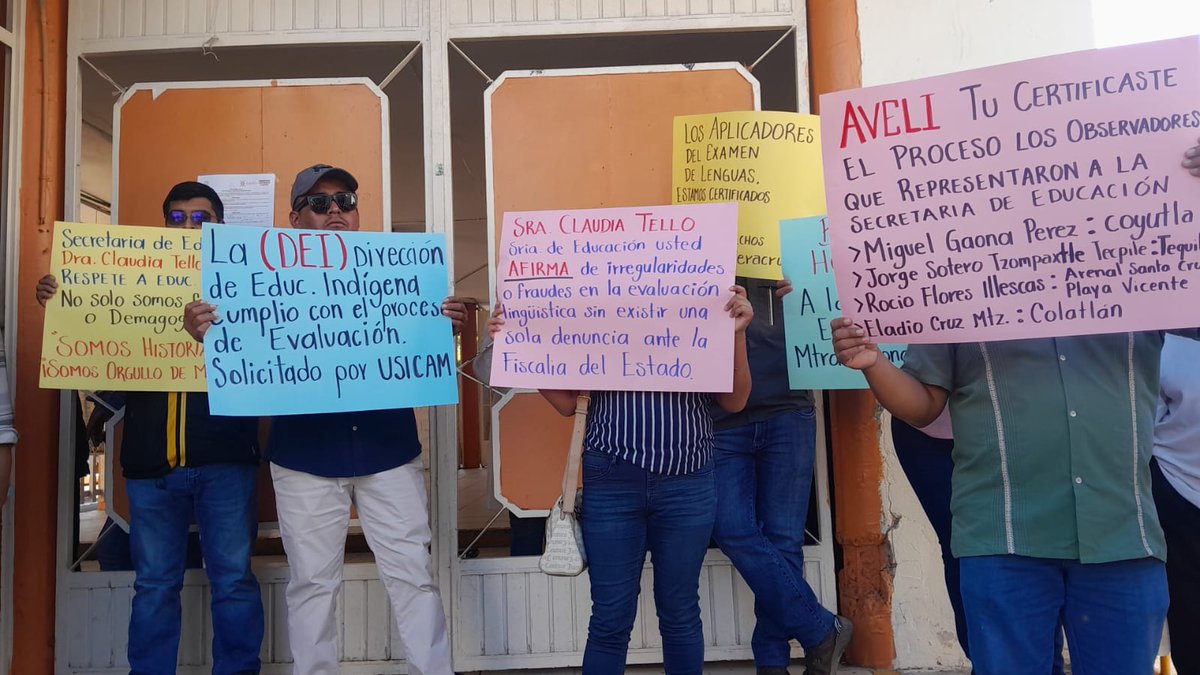 Secretaria de Ed
Dra. Claudia Tello
RESPETE A EDUC.
No solo somos
o Demagog
"SOMOS HISTORIA
¡SOMOS ORGULLO DE M
La (DEI) Dirección
de Educ. Indígena
cumplio con el proces
de Evaluación.
Solicitado por USICAM
SRA. CLAUDIA TELLO
Sria. de Educación usted
AFIRMA de irregularidades
o fraudes en la evaluación
lingüistica sin existir una
sola denuncia ante la
Fiscalia del Estado.
LOS APLICADORES
DEL EXAMEN
DE LENGUAS.
ESTAMOS CERTIFICADOS
CHOS
eracru
A l
Mtra
AVELI TU CERTIFICASTE
EL PROCESO LOS OBSERVADORES
QUE REPRESENTARON A LA
SECRETARIA DE EDUCACIÓN
>Miguel Gaona Perez : coyutla
>Jorge Sotero Tzompaxtle Tecpile : Tequil
>Rocio Flores Illescas : Arenal Santa Cruz
Playa Vicente
>Eladio Cruz Mtz. : Colatlán